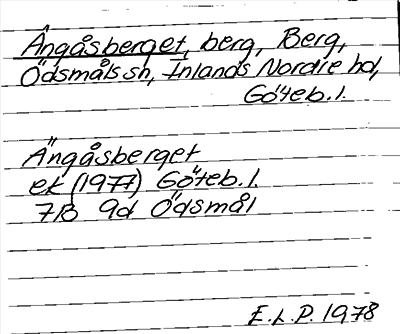 Ängåsberget, berg, Berg,
Ödsmåls sn, Inlands Nordre hd,
Göteb. l.
Ängåsberget
ek (1977) Göteb. l.
7B 9d Ödsmål
E.L.P. 1978